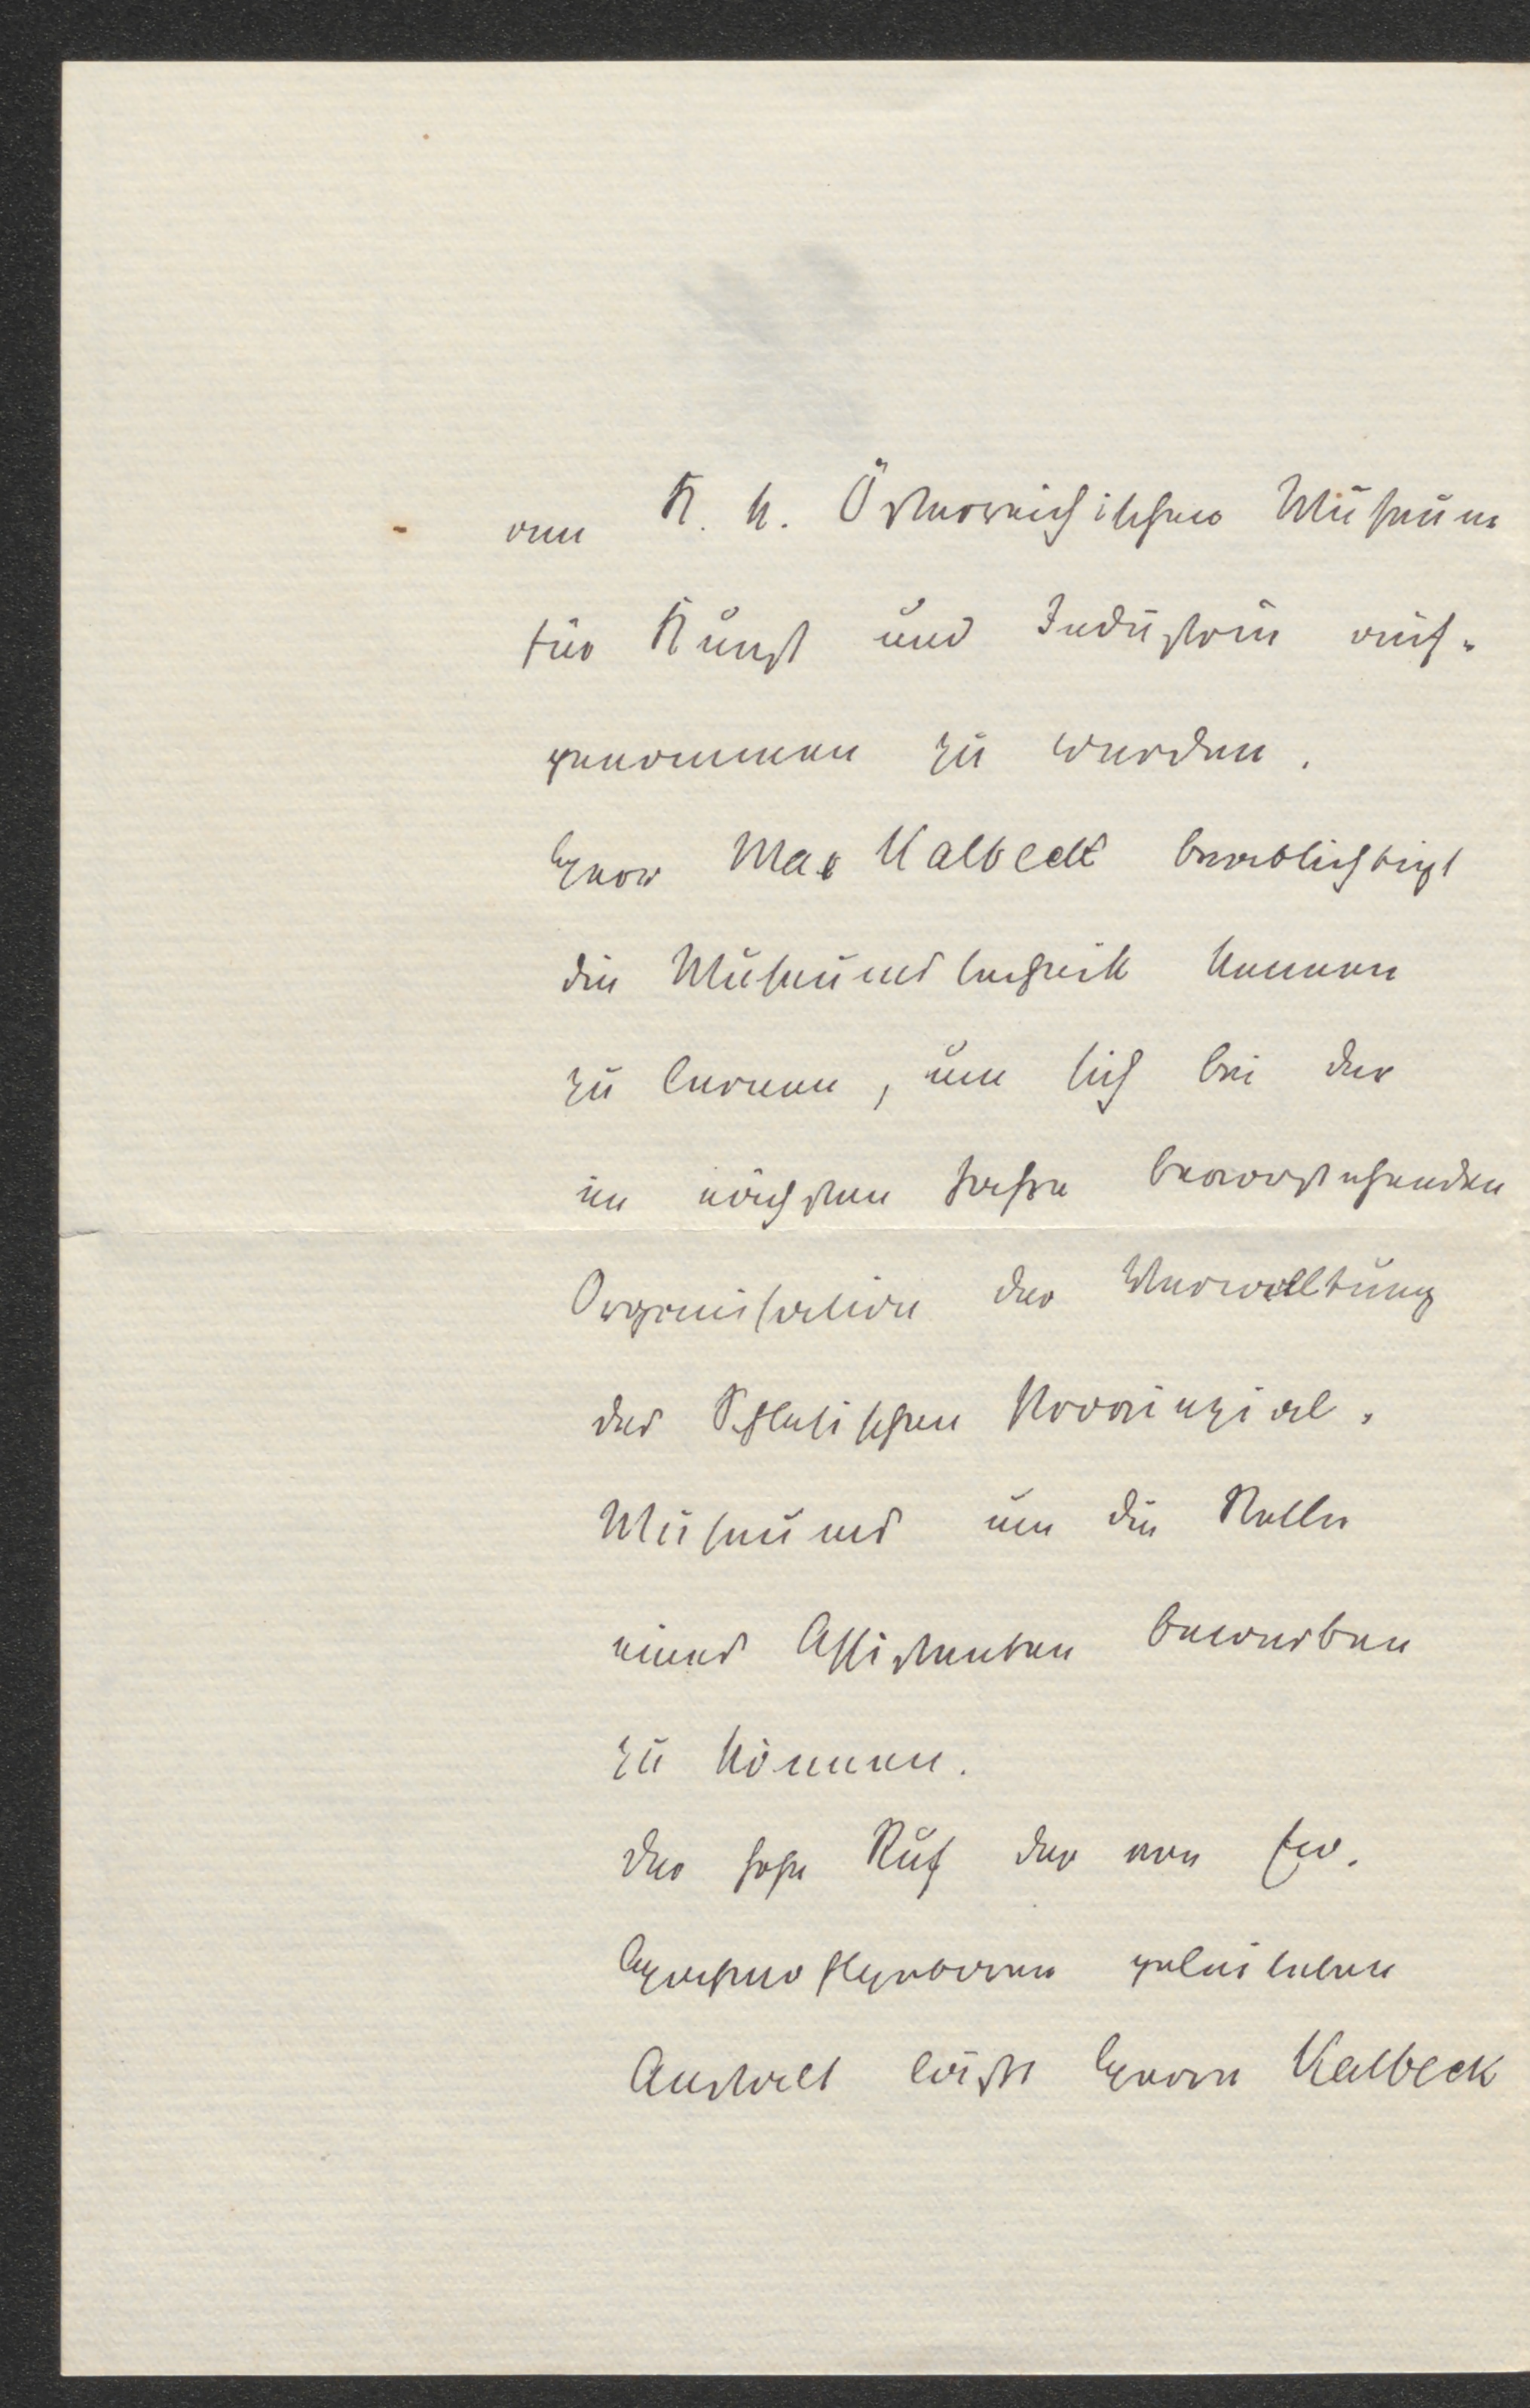 am K. k. Österreichischen Museum
für Kunst und Industrie auf-
genommen zu werden.
Herr Max Kalbeck beabsichtigt
die Museumstechnik kennen
zu lernen, um sich bei der
im nächsten Jahre bevorstehenden
Organisation der Verwaltung
des Schlesischen Provinzial-
Museums um die Stelle
eines Assistenten bewerben
zu können.
Der hohe Ruf der von Ew.
Hochwohlgeboren geleiteten
Anstalt läßt Herrn Kalbeck